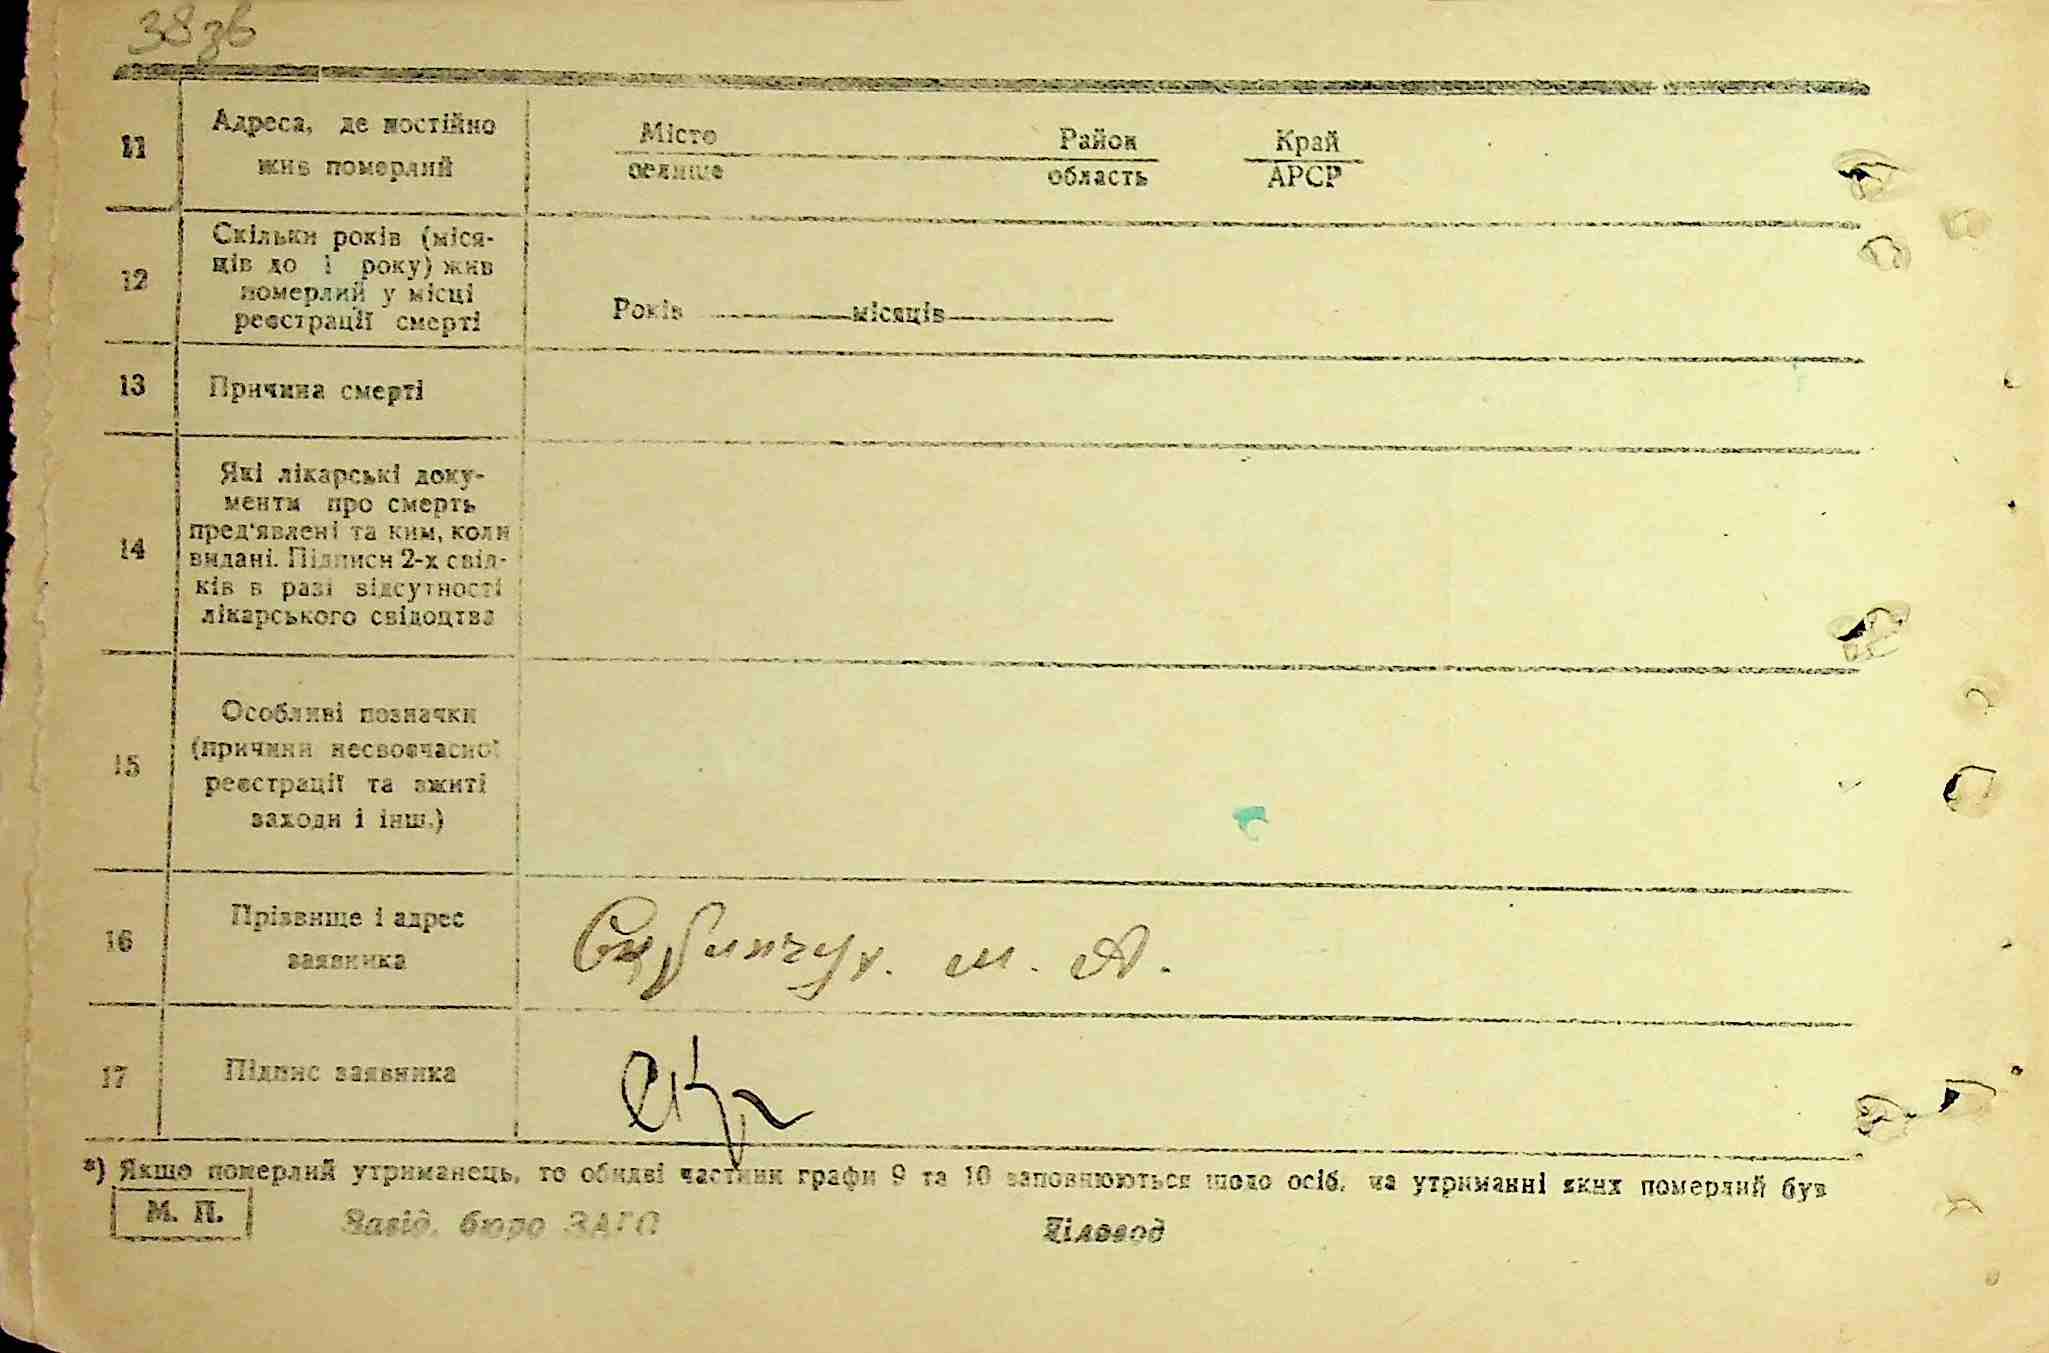 38зв
11
Адреса, де постійно
жив померлий
Місто
селище
Район
область
Край
АРСР
12
Скільки років (міся-
ців до 1 року) жив
померлий у місці
реєстрації смерті
Років місяців
13
Причина смерті
14
Які лікарські доку-
менти про смерть
пред'явлені та ким, коли
видані. Підписи 2-х свід-
ків в разі відсутності
лікарського свідоцтва
15
Особливі позначки
(причини несвоєчасної
реєстрації та вжиті
заходи і інш.)
16
Прізвище і адрес
заявника
М. А.
17
Підпис заявника
*) Якщо померлий утриманець, то обидві частини графи 9 та 10 заповнюються щодо осіб, на утриманні яких померлий був
М. П.
Завід. бюро ЗАГС
Діловод